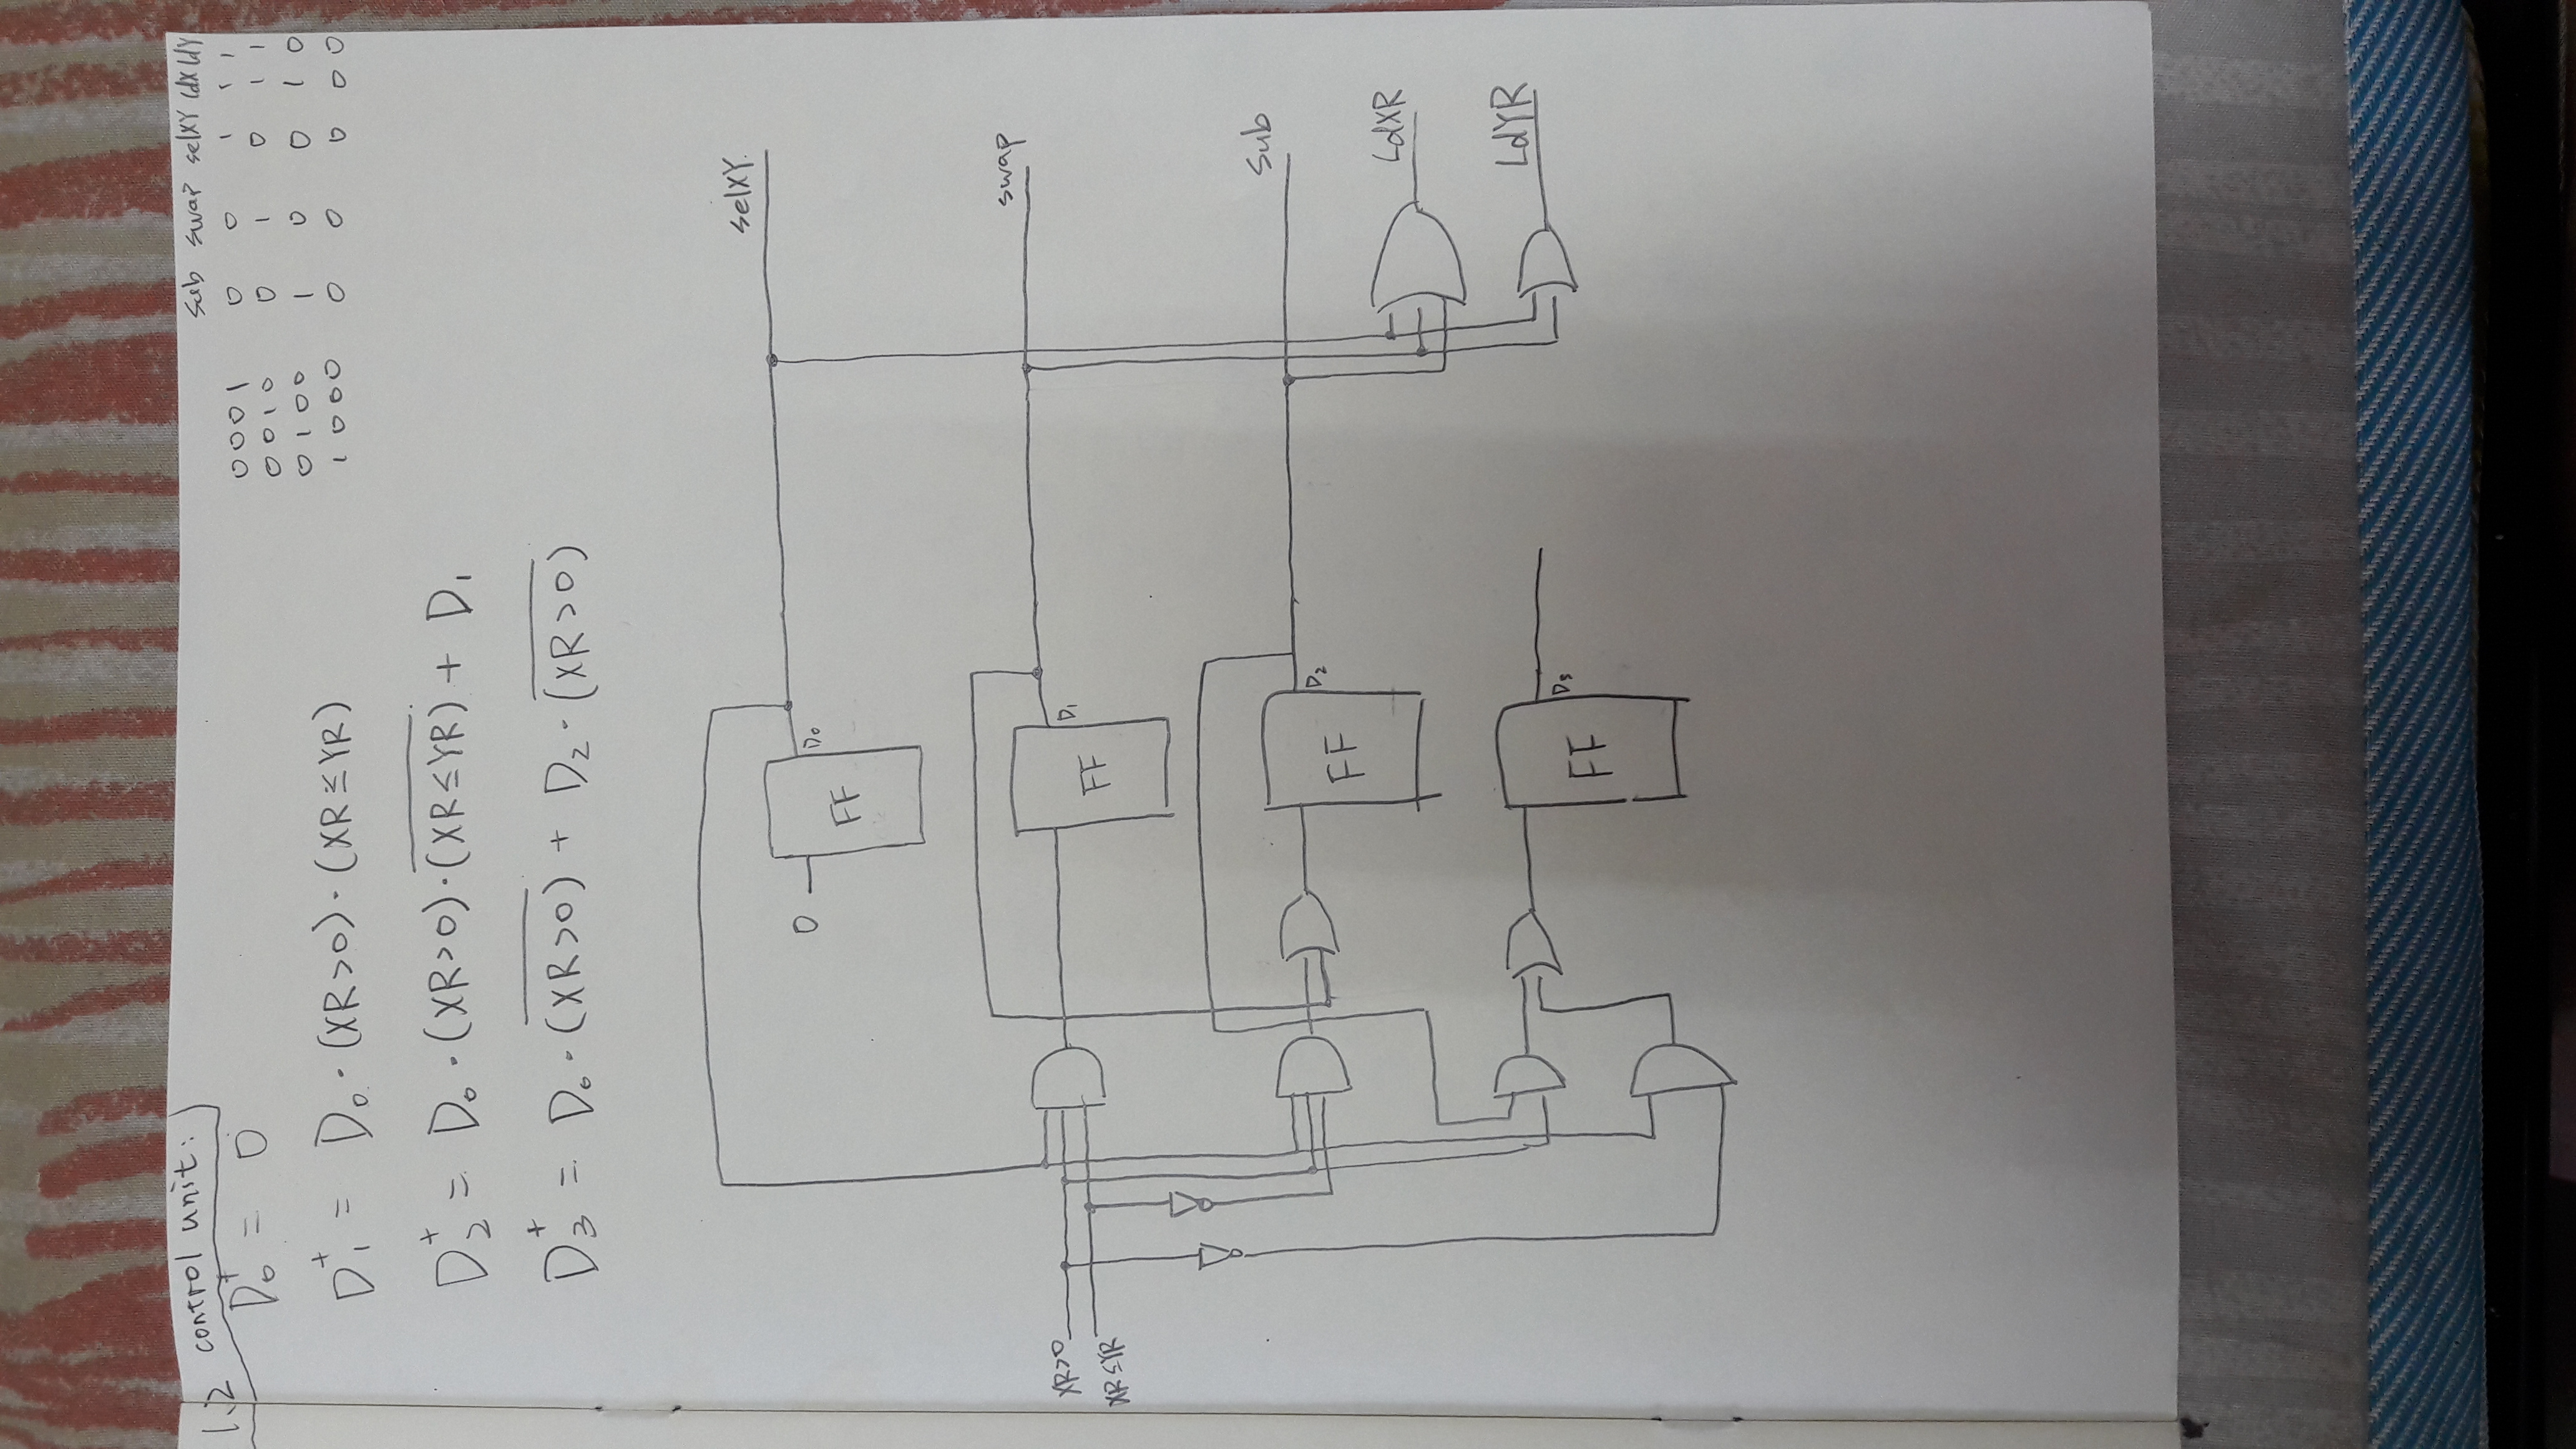 1.2 control unit:
D₀⁺ = 0
D₁⁺ = D₀ · (XR>0) · (XR≤YR)
D₂⁺ = D₀ · (XR>0) · \overline{(XR≤YR)} + D₁
D₃⁺ = D₀ · \overline{(XR>0)} + D₂ · \overline{(XR>0)}
sub swap selXY ldX ldY
0001 0 0 1 1 1
0010 0 1 0 1 1
0100 1 0 0 1 0
1000 0 0 0 0 0
selXY
0
FF
D₀
swap
XR>0
XR≤YR
FF
D₁
Sub
FF
D₂
LdXR
LdYR
FF
D₃